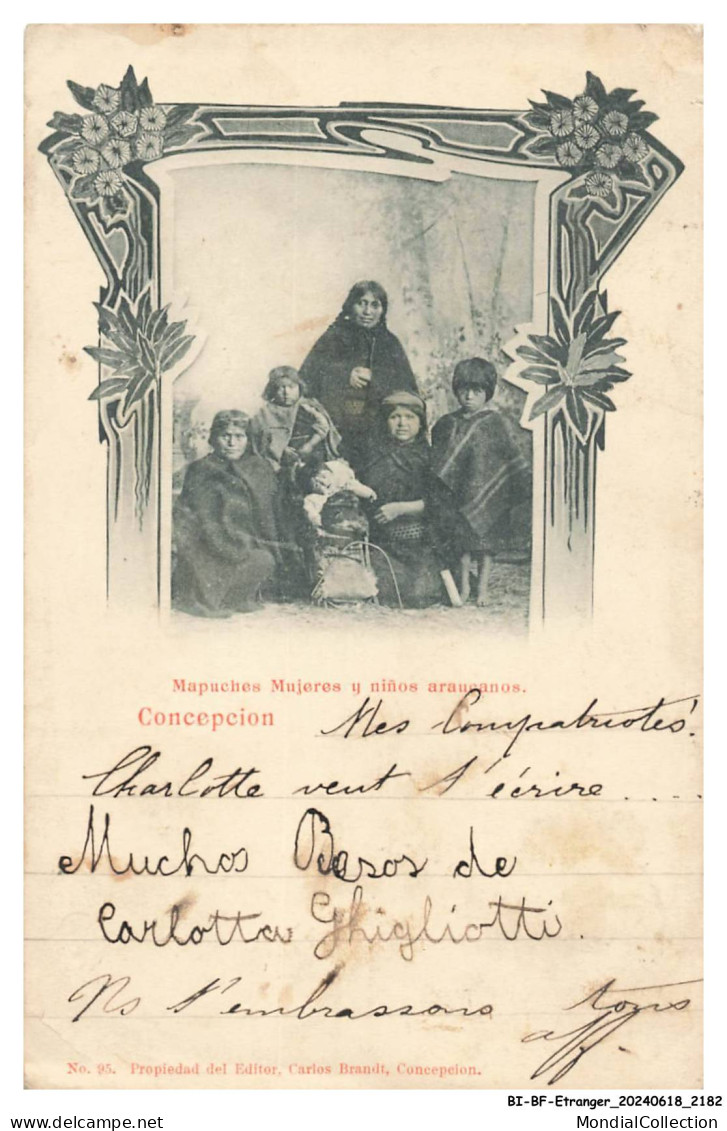 Mapuches Mujeres y niños araucanos.
Concepcion
Mes Compatriotes!
Charlotte veut t'écrire....
Muchos Besos de
Carlotta Ghigliotti.
Ns t'embrassons tous
aff.
No. 95. Propiedad del Editor, Carlos Brandt, Concepcion.
BI-BF-Etranger_20240618_2182
MondialCollection